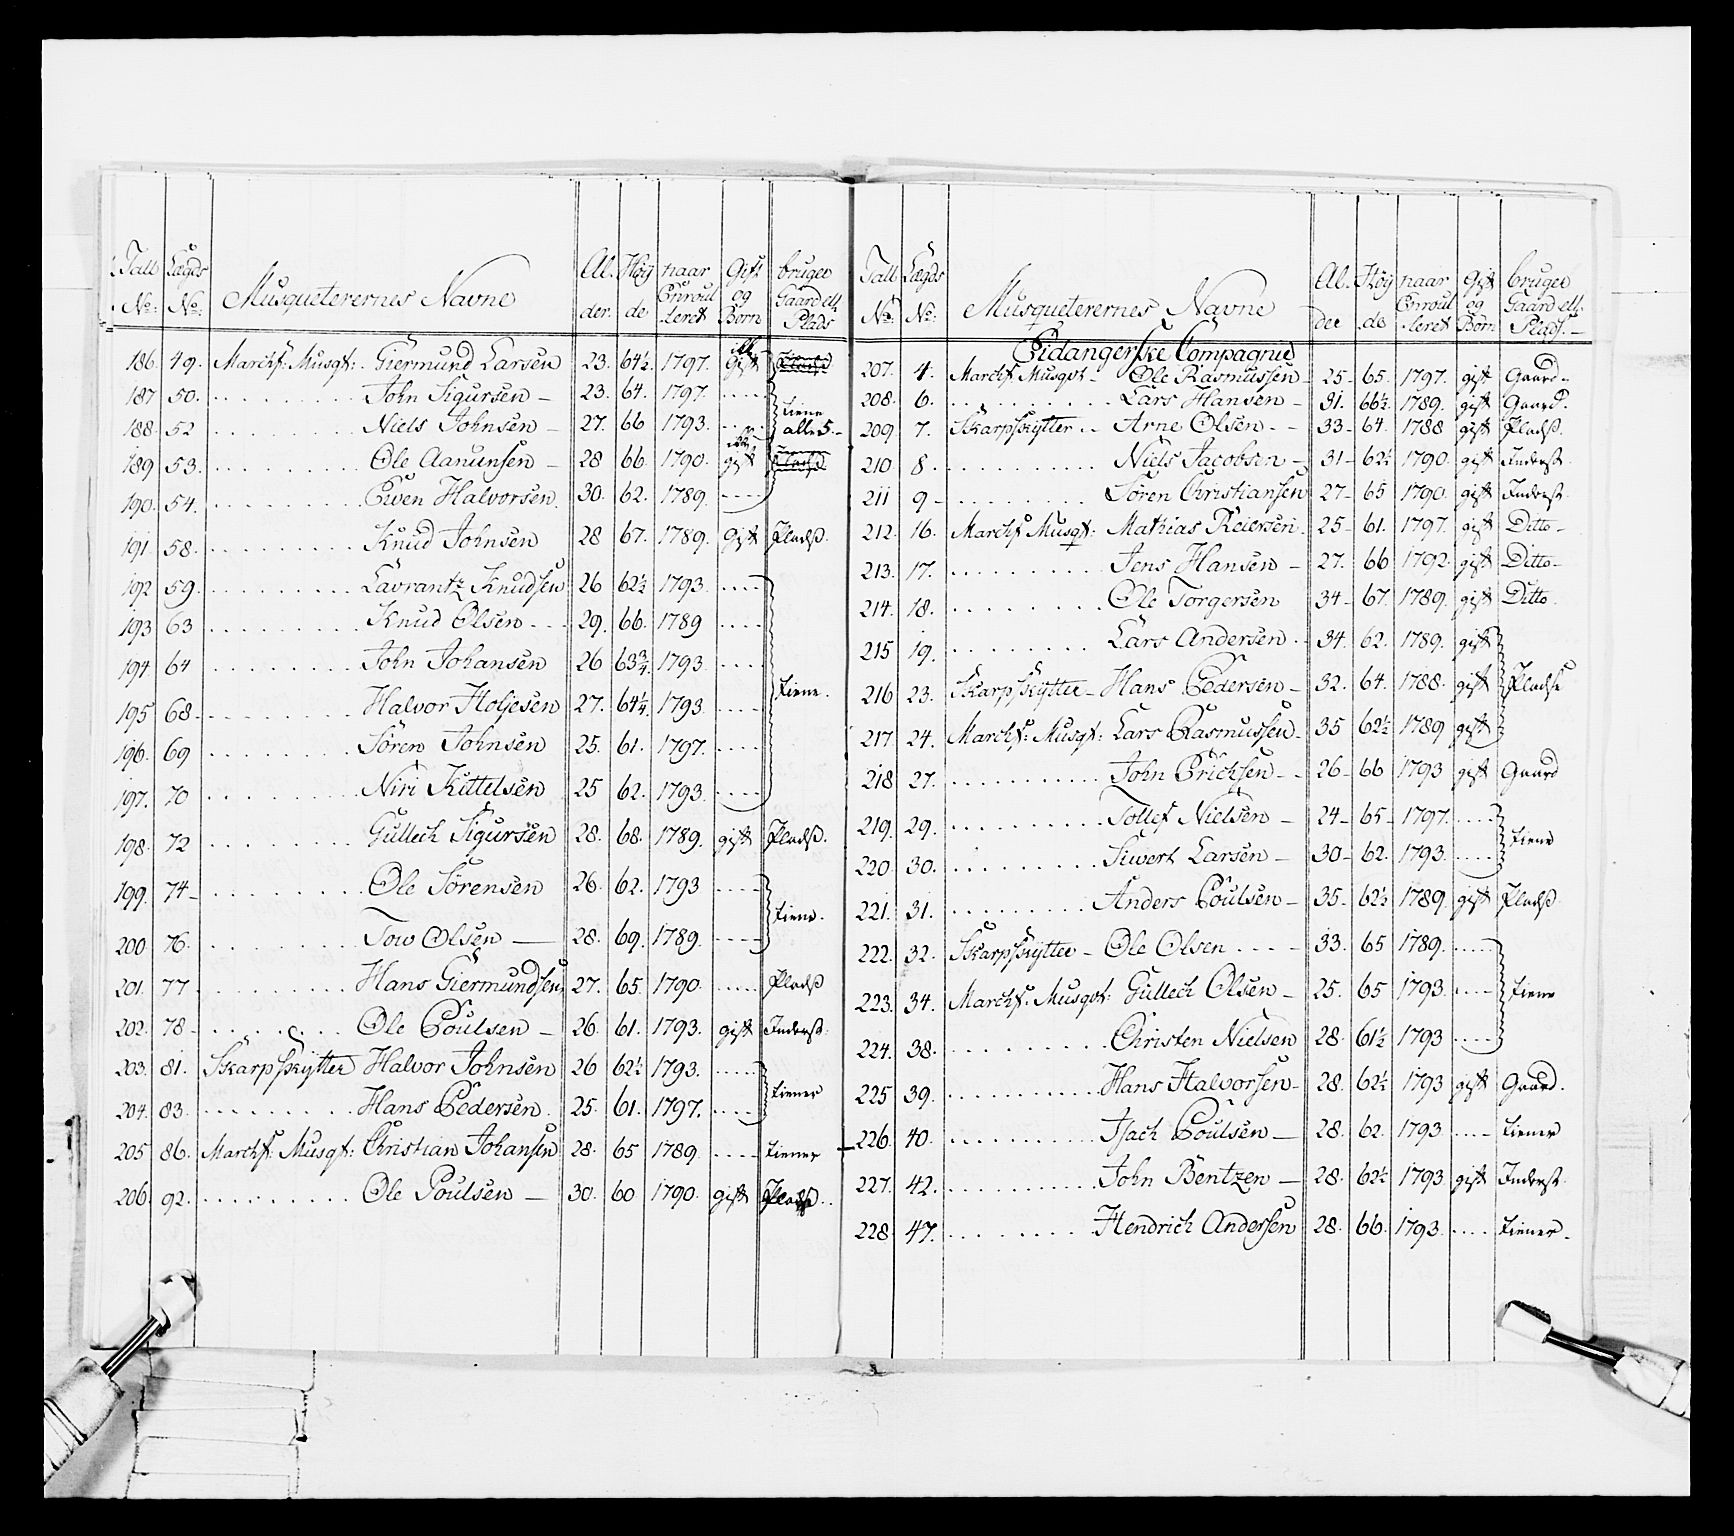 Tall No: Lægds No: Musqueterernes Navne Al. der. Høÿ de naar Enroul leret Gift og Børn bruger Gaard ell: Plads
186. 49. Marchf: Musqt: Giermund Larsen 23. 64½ 1797. Gift Pladß
187 50. John Sigursen 23. 64. 1797.
188. 52 Niels Johnsen 27. 66 1793. tiene alle 5.
189 53. Ole Aanunsen 28 66 1790. gift Pladß
190. 54. Even Halvorsen 30. 62. 1789.
191 58. Knud Johnsen 28 67. 1789. Gift Pladß.
192 59. Lavrantz Knudsen 26 62½ 1793.
193 63 Knud Olsen 29. 66. 1789
194 64 John Johansen 26 63¾ 1793.
195 68 Halvor Holjesen 27. 64¼ 1793. tiene.
196. 69 Sören Johnsen 25. 61. 1797.
197. 70 Niri Kittelsen 25 62. 1793.
198. 72 Gullech Sigursen 28. 68. 1789. gift Pladß.
199. 74 Ole Sörensen 26. 62. 1793
200 76. Tow Olsen 28. 69. 1789. tiene.
201. 77 Hans Giermundsen 27. 65. 1790. Pladß
202. 78 Ole Poulsen 26. 61. 1793. gift Inderst:
203. 81. Skarpskÿtter Halvor Johnsen 26 62½ 1793.
204. 83. Hans Pedersen 25. 61. 1797. tiener
205 86. Marchf: Musqt: Christian Johansen 28. 65 1789. tiener
206. 92. Ole Poulsen 30. 60 1790. gift Pladß.
Tall No: Lægds No: Musqueterernes Navne Al. der Høÿ de naar Enroul leret Gift og Børn bruger Gaard ell: Plads.
Eidangerske Compagnie
207. 4. Marchf: Musqvt Ole Rasmussen 25 65. 1797. gift Gaard
208. 6. Lars Hansen 31. 66½ 1789. gift Gaard.
209 7. Skarpskÿtter Arne Olsen 33 64. 1788 gift Pladß.
210. 8. Niels Jacobsen 31 62½ 1790. gift Inderst.
211 9 Sören Christiansen 27 65 1790. gift Inderst.
212. 16. Marchf: Musqt: Mathias Reiersen 25 61. 1797. gift Ditto
213. 17. Jens Hansen 27. 66 1792. gift Ditto
214. 18. Ole Torgersen 34 67. 1789. gift Ditto.
215 19. Lars Andersen 34. 62. 1789. gift
216 23. Skarpskÿtter Hans Pedersen 32. 64. 1788. gift Pladse
217 24. Marchf: Musqt: Lars Rasmussen 35 62½ 1789 gift
218 27. John Erichsen 26 66 1793 gift Gaard
219. 29. Tollef Nielsen 24 65 1797. tiene
220 30. Siwert Larsen 30 62. 1793.
221. 31. Anders Poulsen 35 62½ 1789. gift Pladß
222. 32. Skarpskÿtter Ole Olsen 33. 65 1789.
223. 34. Marchf: Musqvt: Gullech Olsen 25. 65 1793. tiene
224. 38. Christen Nielsen 28. 61½ 1793
225 39. Hans Halvorsen 28. 62½ 1793 gift Gaard.
226 40. Isach Poulsen 28. 62. 1793 tiener
227. 42. John Bentzen 28. 62½ 1793 gift Inderst.
228 47. Hendrich Andersen 28. 66. 1793. tiener